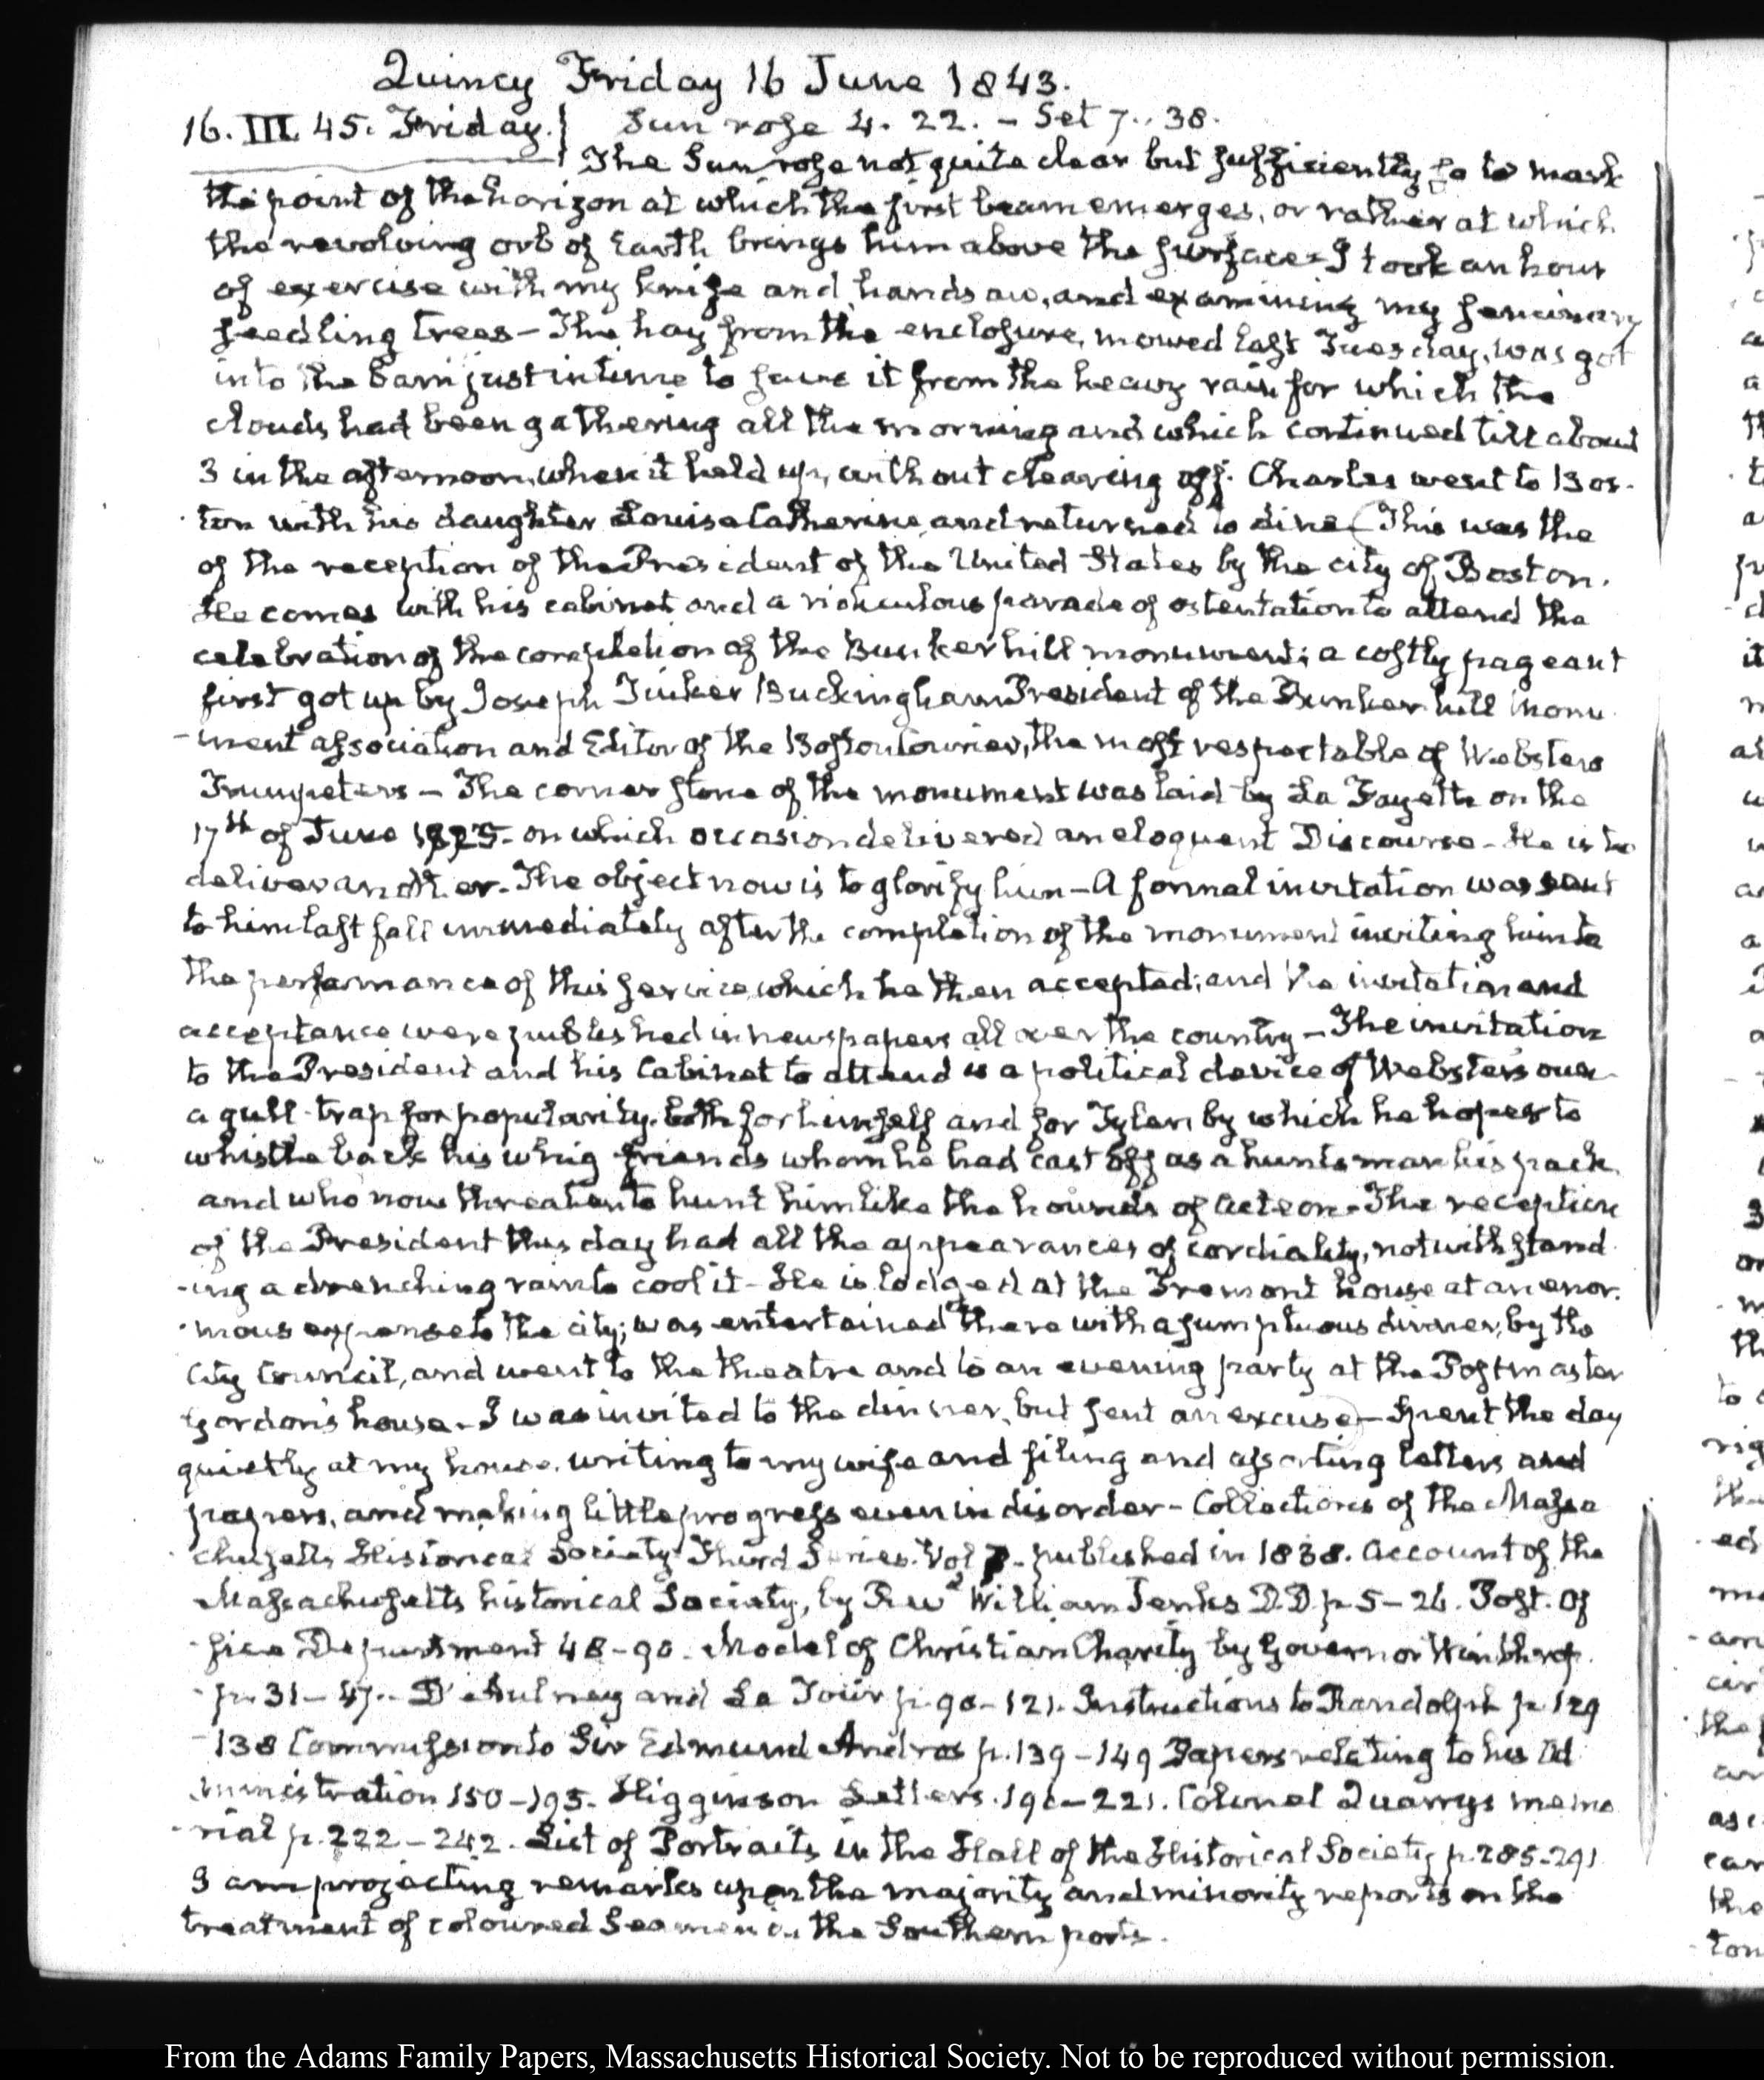 Quincy Friday 16 June 1843.
16. III. 45. Friday. Sun rose 4. 22. – Set 7., 38.
The Sun rose not quite clear but sufficiently so to mark
the point of the horizon at which the first beam emerges, or rather at which
the revolving orb of Earth brings him above the surface – I took an hour
of exercise with my knife and handsaw, and examining my
seedling trees – The hay from the enclosure, mowed last Tuesday, was got
into the barn just in time to save it from the heavy rain for which the
clouds had been gathering all the morning and which continued till about
3 in the afternoon, when it held up, without clearing off. Charles went to Bos-
ton with his daughter Louisa Catherine, and returned to dine (This was the
of the reception of the President of the United States by the city of Boston.
He comes with his cabinet and a ridiculous parade of ostentation to attend the
celebration of the completion of the Bunker hill monument; a costly pageant
first got up by Joseph Tinker Buckingham President of the Bunker hill Monu
-ment association and Editor of the Boston Courier, the most respectable of Websters
Trumpeters – The corner stone of the monument was laid by La Fayette on the
17th of June 1825. on which occasion delivered an eloquent Discourse – He is to
deliver another. The object now is to glorify him – A formal invitation was sent
to him last fall immediately after the completion of the monument inviting him to
the performance of this service, which he then accepted; and the invitation and
acceptance were published in newspapers all over the country – The invitation
to the President and his Cabinet to attend is a political device of Webster's own
a gull-trap for popularity, both for himself and for Tyler, by which he hopes to
whistle back his whig friends whom he had cast off as a huntsman his pack,
and who now threaten to hunt him like the hounds of Acteon – The reception
of the President this day had all the appearances of cordiality, notwithstand
-ing a drenching rain to cool it – He is lodged at the Tremont house at an enor-
-mous expense to the city; was entertained there with a sumptuous dinner, by the
City Council, and went to the theatre and to an evening party at the Postmaster
Gordon's house – I was invited to the dinner, but sent an excuse) – Spent the day
quietly at my house, writing to my wife and filing and assorting letters and
papers, and making little progress even in disorder – Collections of the Massa
chusetts Historical Society Third Series. Vol 7 – published in 1838. Account of the
Massachusetts historical Society, by Revd William Jenks D.D. p 5–26. Post. Of
-fice Department 48–90. Model of Christian Charity by Governor Winthrop.
p. 31–47. – D'Aulney and La Tour p. 90–121. Instructions to Randolph p. 129
–138 Commission to Sir Edmund Andros p. 139–149 Papers relating to his Ad
-ministration 150–195. Higginson Letters. 196–221. Colonel Quarrys memo
-rial p. 222–242. List of Portraits in the Hall of the Historical Society p. 285–291
I am projecting remarks upon the majority and minority reports on the
treatment of coloured Seamen in the Southern ports.
From the Adams Family Papers, Massachusetts Historical Society. Not to be reproduced without permission.